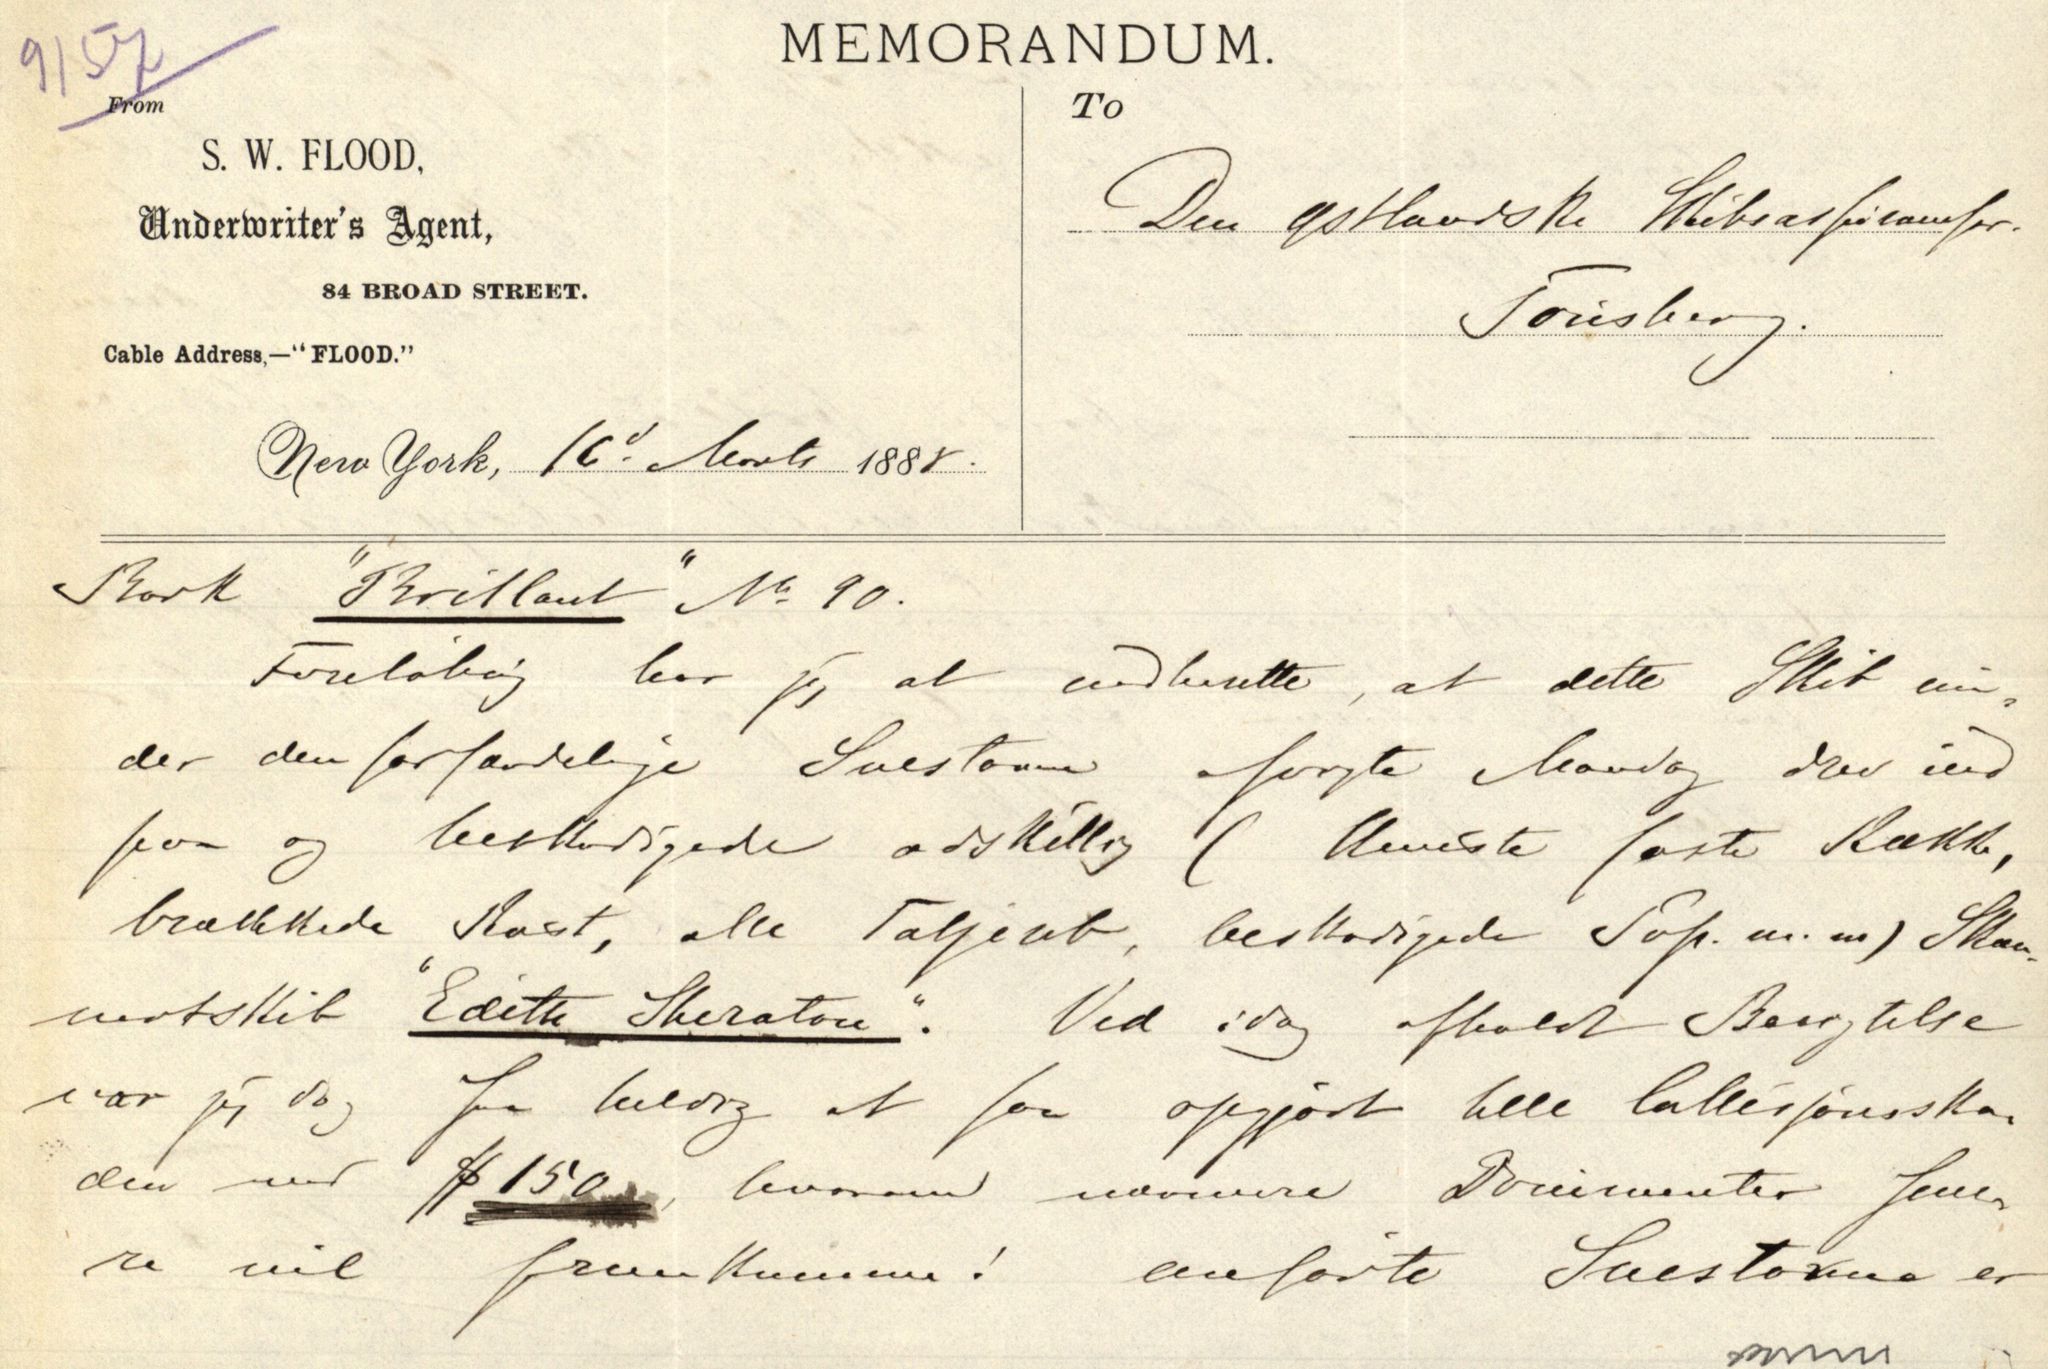 9/57
MEMORANDUM.
From
S. W. FLOOD,
Underwriter's Agent,
84 BROAD STREET.
Cable Address,—"FLOOD."
New York, 16d. Marts 1888.
To
Den østlandske Skibsassuranceforr.
Tønsberg.
Bark "Brillant" No. 90.
Foreløbig har jeg at indberette, at dette Skib un-
der den forfærdelige Snestorm forrige Mandag drev ind
paa og beskadigede adskillig ( knuste faste Række,
brækkede Røst, alle Taljereb, beskadigede Top. m. m) Skon-
nertskib "Edith Sheraton". Ved idag afholdt Besigtelse
var jeg dog saa heldig at faa opgjort hele Collisjonsska-
den med $ 150, hvorom nærmere Documenter sene-
re vil fremkomme! anførte Snestorm er